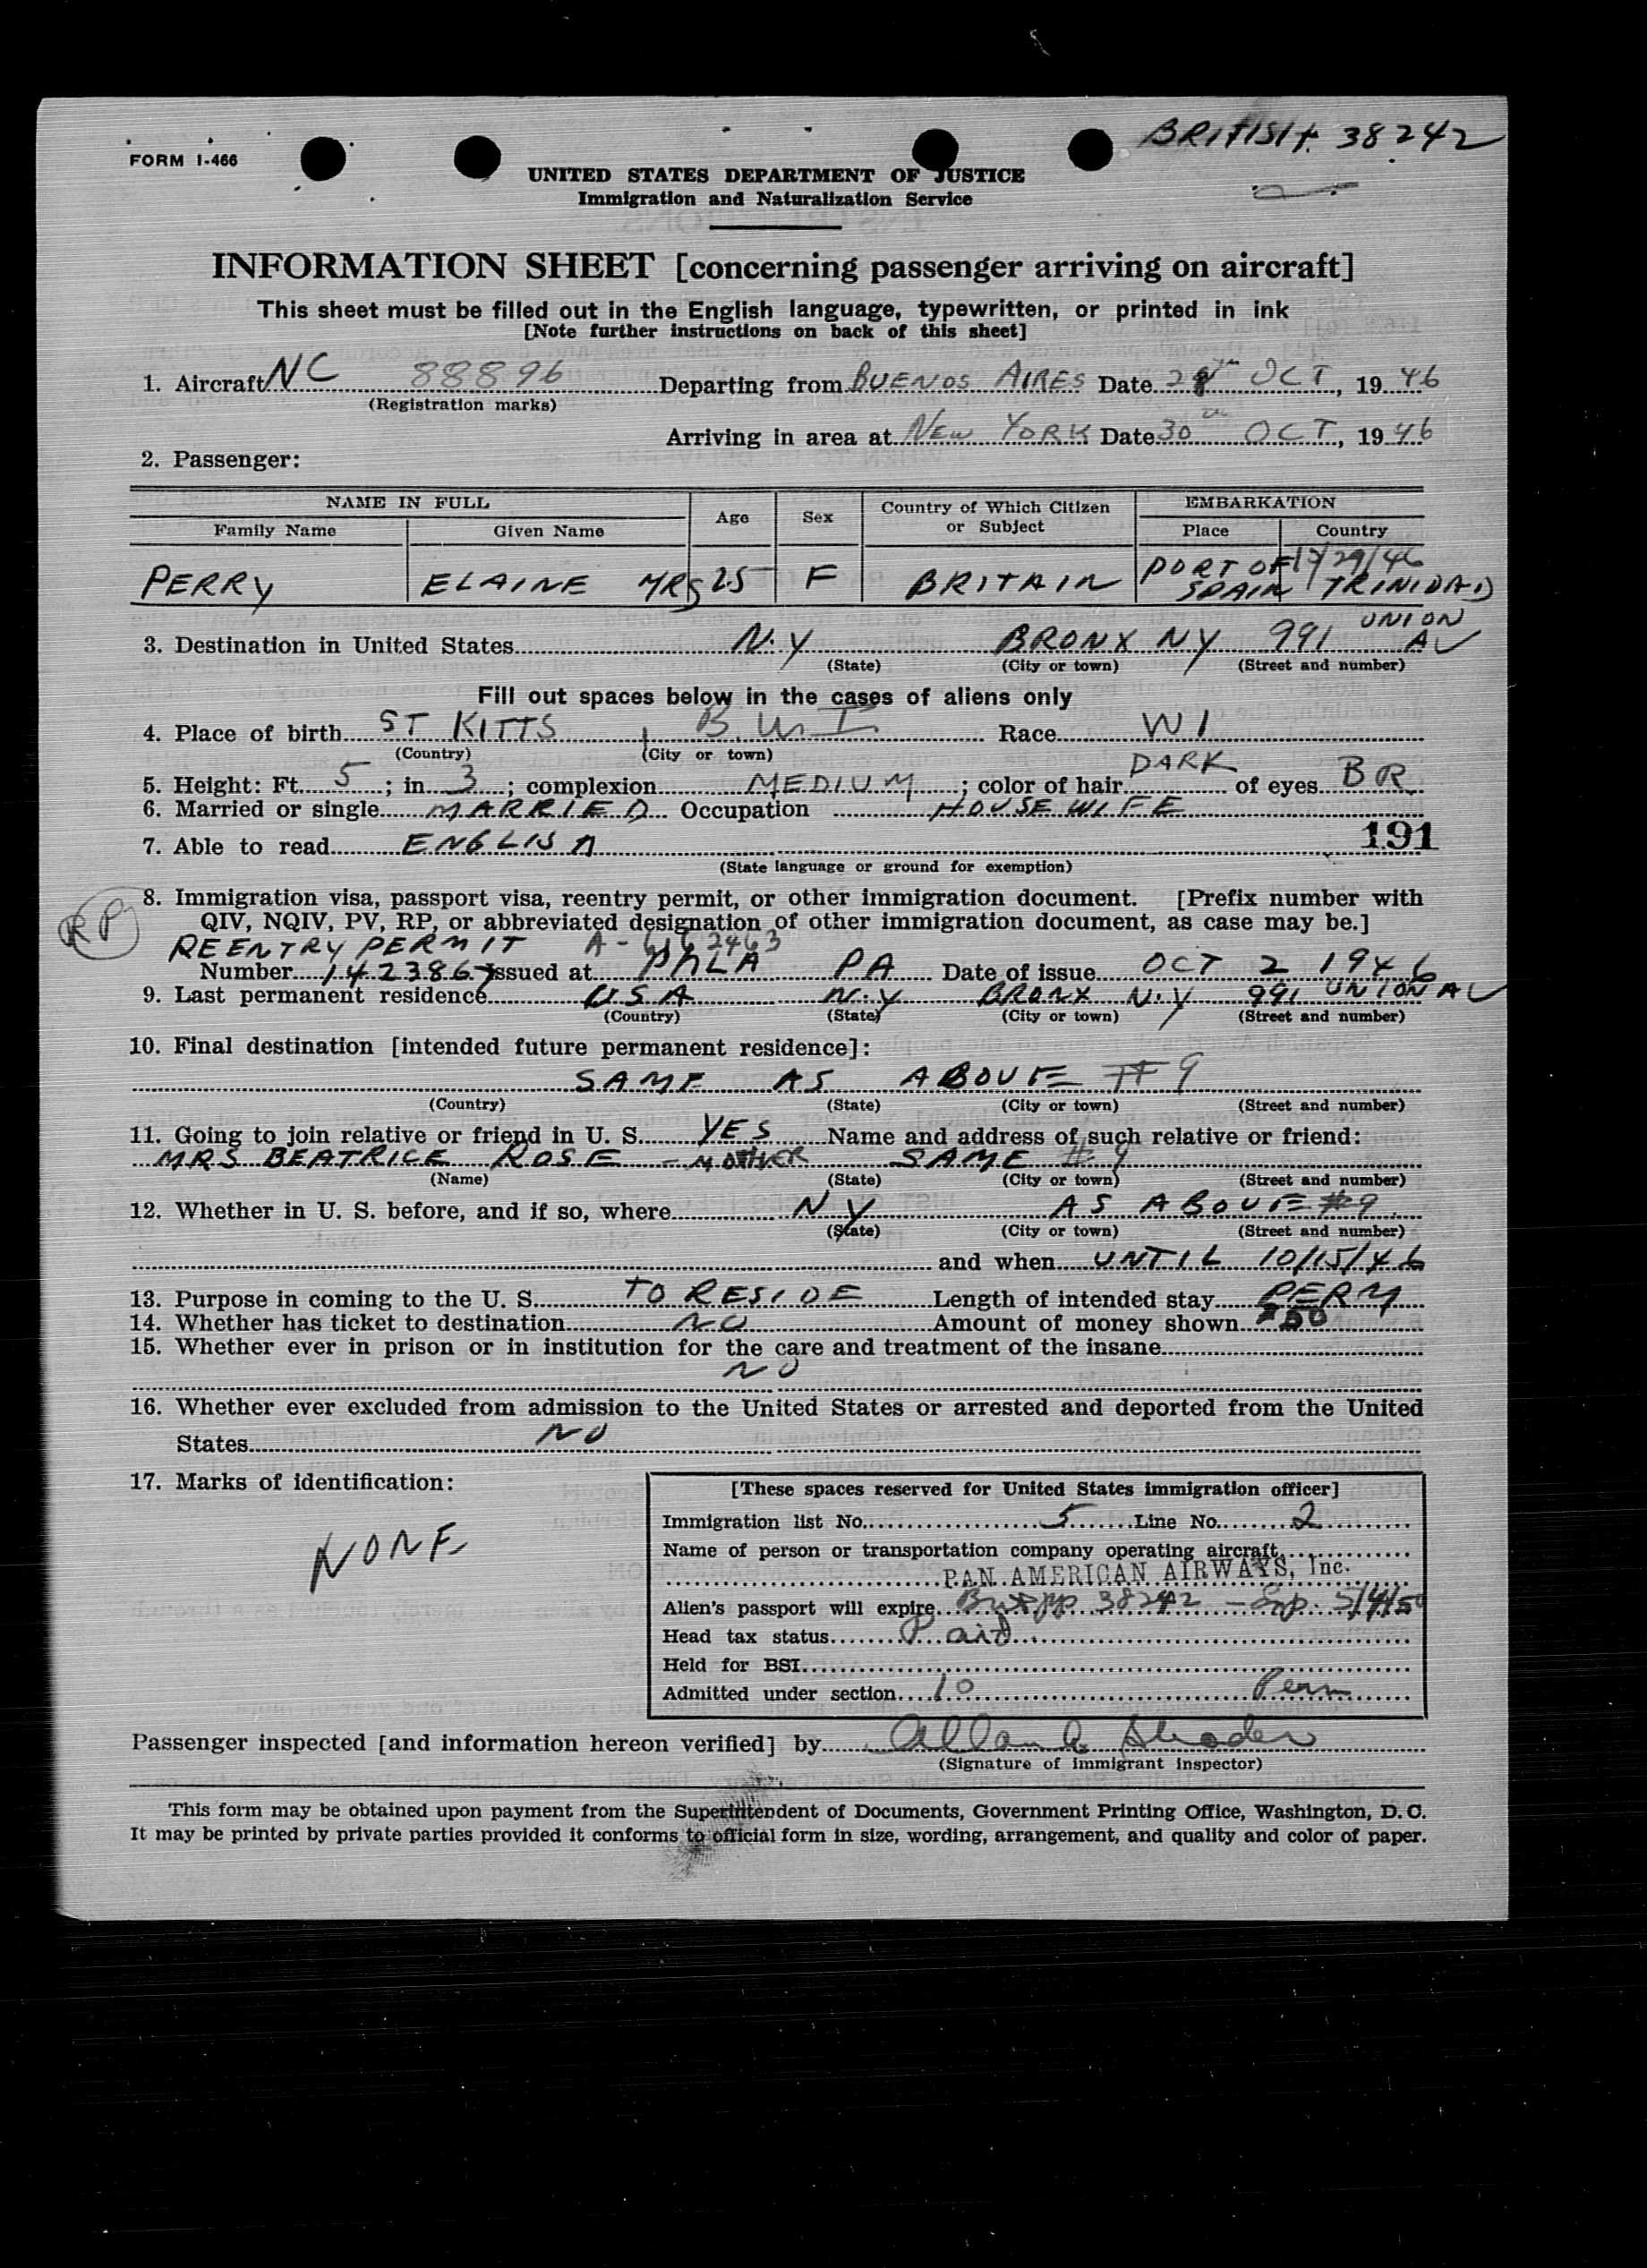 BRITISH 38242
FORM I-466
UNITED STATES DEPARTMENT OF JUSTICE
Immigration and Naturalization Service
INFORMATION SHEET [concerning passenger arriving on aircraft]
This sheet must be filled out in the English language, typewritten, or printed in ink
[Note further instructions on back of this sheet]
1. Aircraft NC 88896 Departing from BUENOS AIRES Date OCT, 19 46
(Registration marks)
Arriving in area at NEW YORK Date 30 OCT, 19 46
2. Passenger:
NAME IN FULL Age Sex Country of Which Citizen or Subject EMBARKATION
Family Name Given Name Place Country
PERRY ELAINE MRS 25 F BRITAIN PORT OF SPAIN 29/46 TRINIDAD
3. Destination in United States N.Y BRONX NY 991 UNION AV
(State) (City or town) (Street and number)
Fill out spaces below in the cases of aliens only
4. Place of birth ST KITTS B.W.I Race WI
(Country) (City or town)
5. Height: Ft. 5; in. 3; complexion MEDIUM; color of hair DARK of eyes BR
6. Married or single MARRIED Occupation HOUSEWIFE
7. Able to read ENGLISH 191
(State language or ground for exemption)
RP
8. Immigration visa, passport visa, reentry permit, or other immigration document. [Prefix number with
QIV, NQIV, PV, RP, or abbreviated designation of other immigration document, as case may be.]
REENTRY PERMIT
Number 1423867 Issued at PHLA PA Date of issue OCT 2 1946
9. Last permanent residence USA N.Y BRONX N.Y 991 UNION AV
(Country) (State) (City or town) (Street and number)
10. Final destination [intended future permanent residence]:
SAME AS ABOVE #9
(Country) (State) (City or town) (Street and number)
11. Going to join relative or friend in U. S. YES Name and address of such relative or friend:
MRS BEATRICE ROSE - MOTHER SAME #9
(Name) (State) (City or town) (Street and number)
12. Whether in U. S. before, and if so, where NY AS ABOVE #9
(State) (City or town) (Street and number)
and when UNTIL 10/15/46
13. Purpose in coming to the U. S. TO RESIDE Length of intended stay PERM
14. Whether has ticket to destination NO Amount of money shown $50
15. Whether ever in prison or in institution for the care and treatment of the insane
NO
16. Whether ever excluded from admission to the United States or arrested and deported from the United
States NO
17. Marks of identification:
NONE
[These spaces reserved for United States immigration officer]
Immigration list No. 5 Line No. 2
Name of person or transportation company operating aircraft
PAN AMERICAN AIRWAYS, Inc.
Alien's passport will expire Brit pp 38242 - Exp.
Head tax status Paid
Held for BSI
Admitted under section 10 Perm
Passenger inspected [and information hereon verified] by Allan
(Signature of immigrant inspector)
This form may be obtained upon payment from the Superintendent of Documents, Government Printing Office, Washington, D. C.
It may be printed by private parties provided it conforms to official form in size, wording, arrangement, and quality and color of paper.